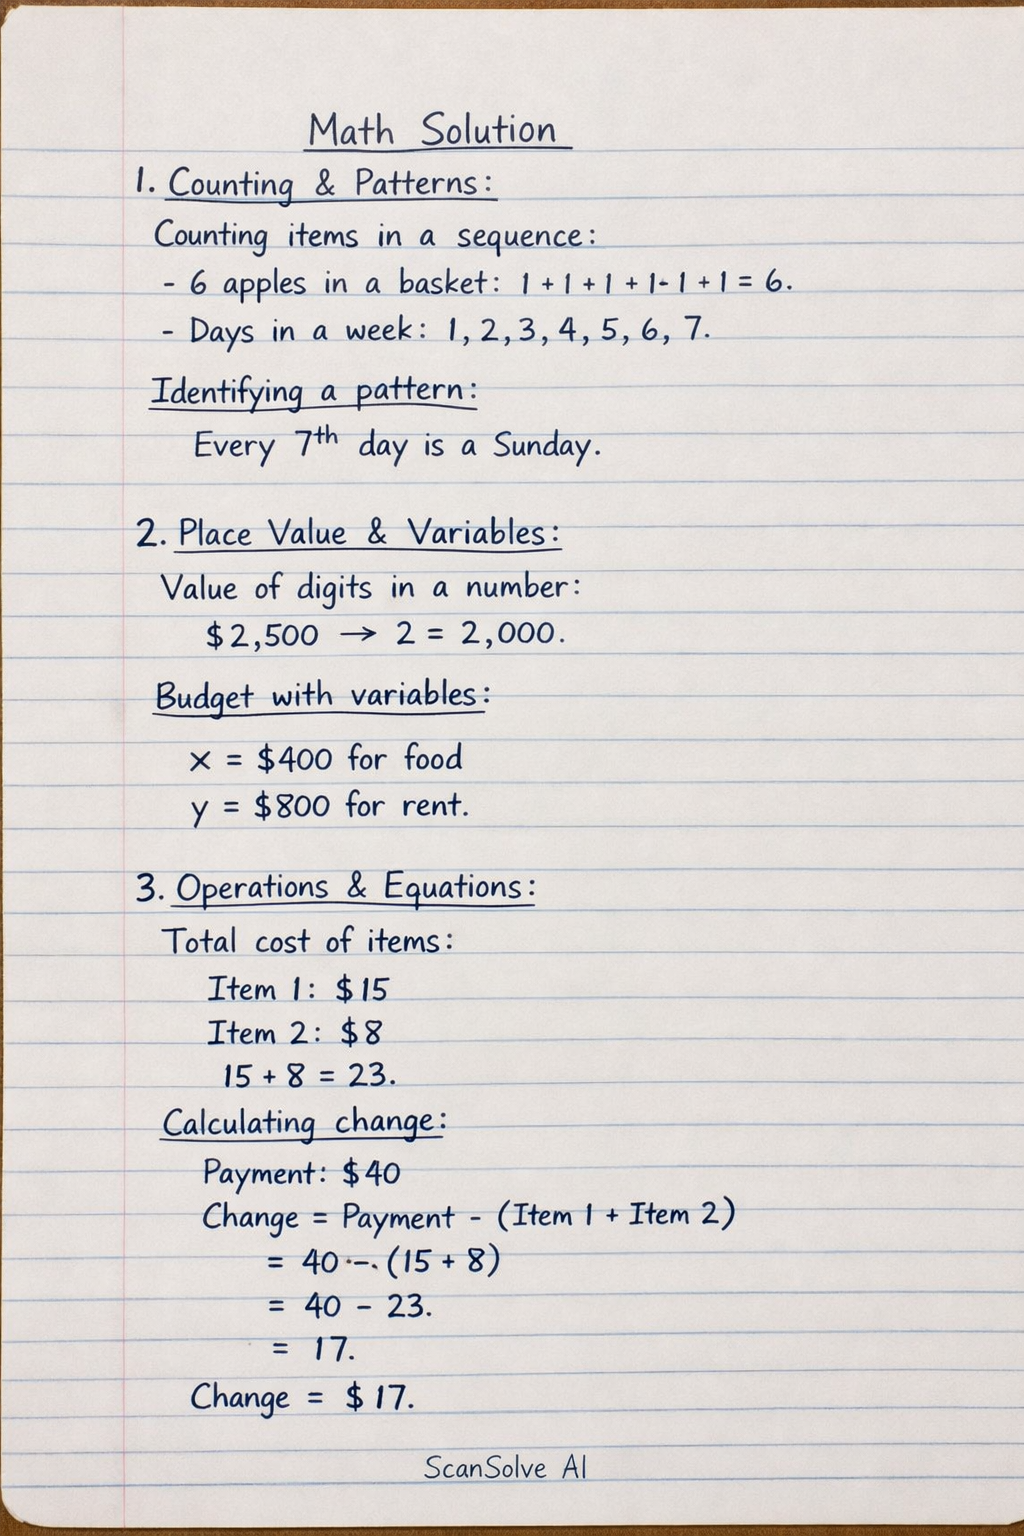 Math Solution
1. Counting & Patterns:
Counting items in a sequence:
- 6 apples in a basket: 1 + 1 + 1 + 1- 1 + 1 = 6.
- Days in a week: 1, 2, 3, 4, 5, 6, 7.
Identifying a pattern:
Every 7th day is a Sunday.
2. Place Value & Variables:
Value of digits in a number:
$2,500 → 2 = 2,000.
Budget with variables:
x = $400 for food
y = $800 for rent.
3. Operations & Equations:
Total cost of items:
Item 1: $15
Item 2: $8
15 + 8 = 23.
Calculating change:
Payment: $40
Change = Payment - (Item 1 + Item 2)
= 40 -. (15 + 8)
= 40 - 23.
= 17.
Change = $17.
ScanSolve AI